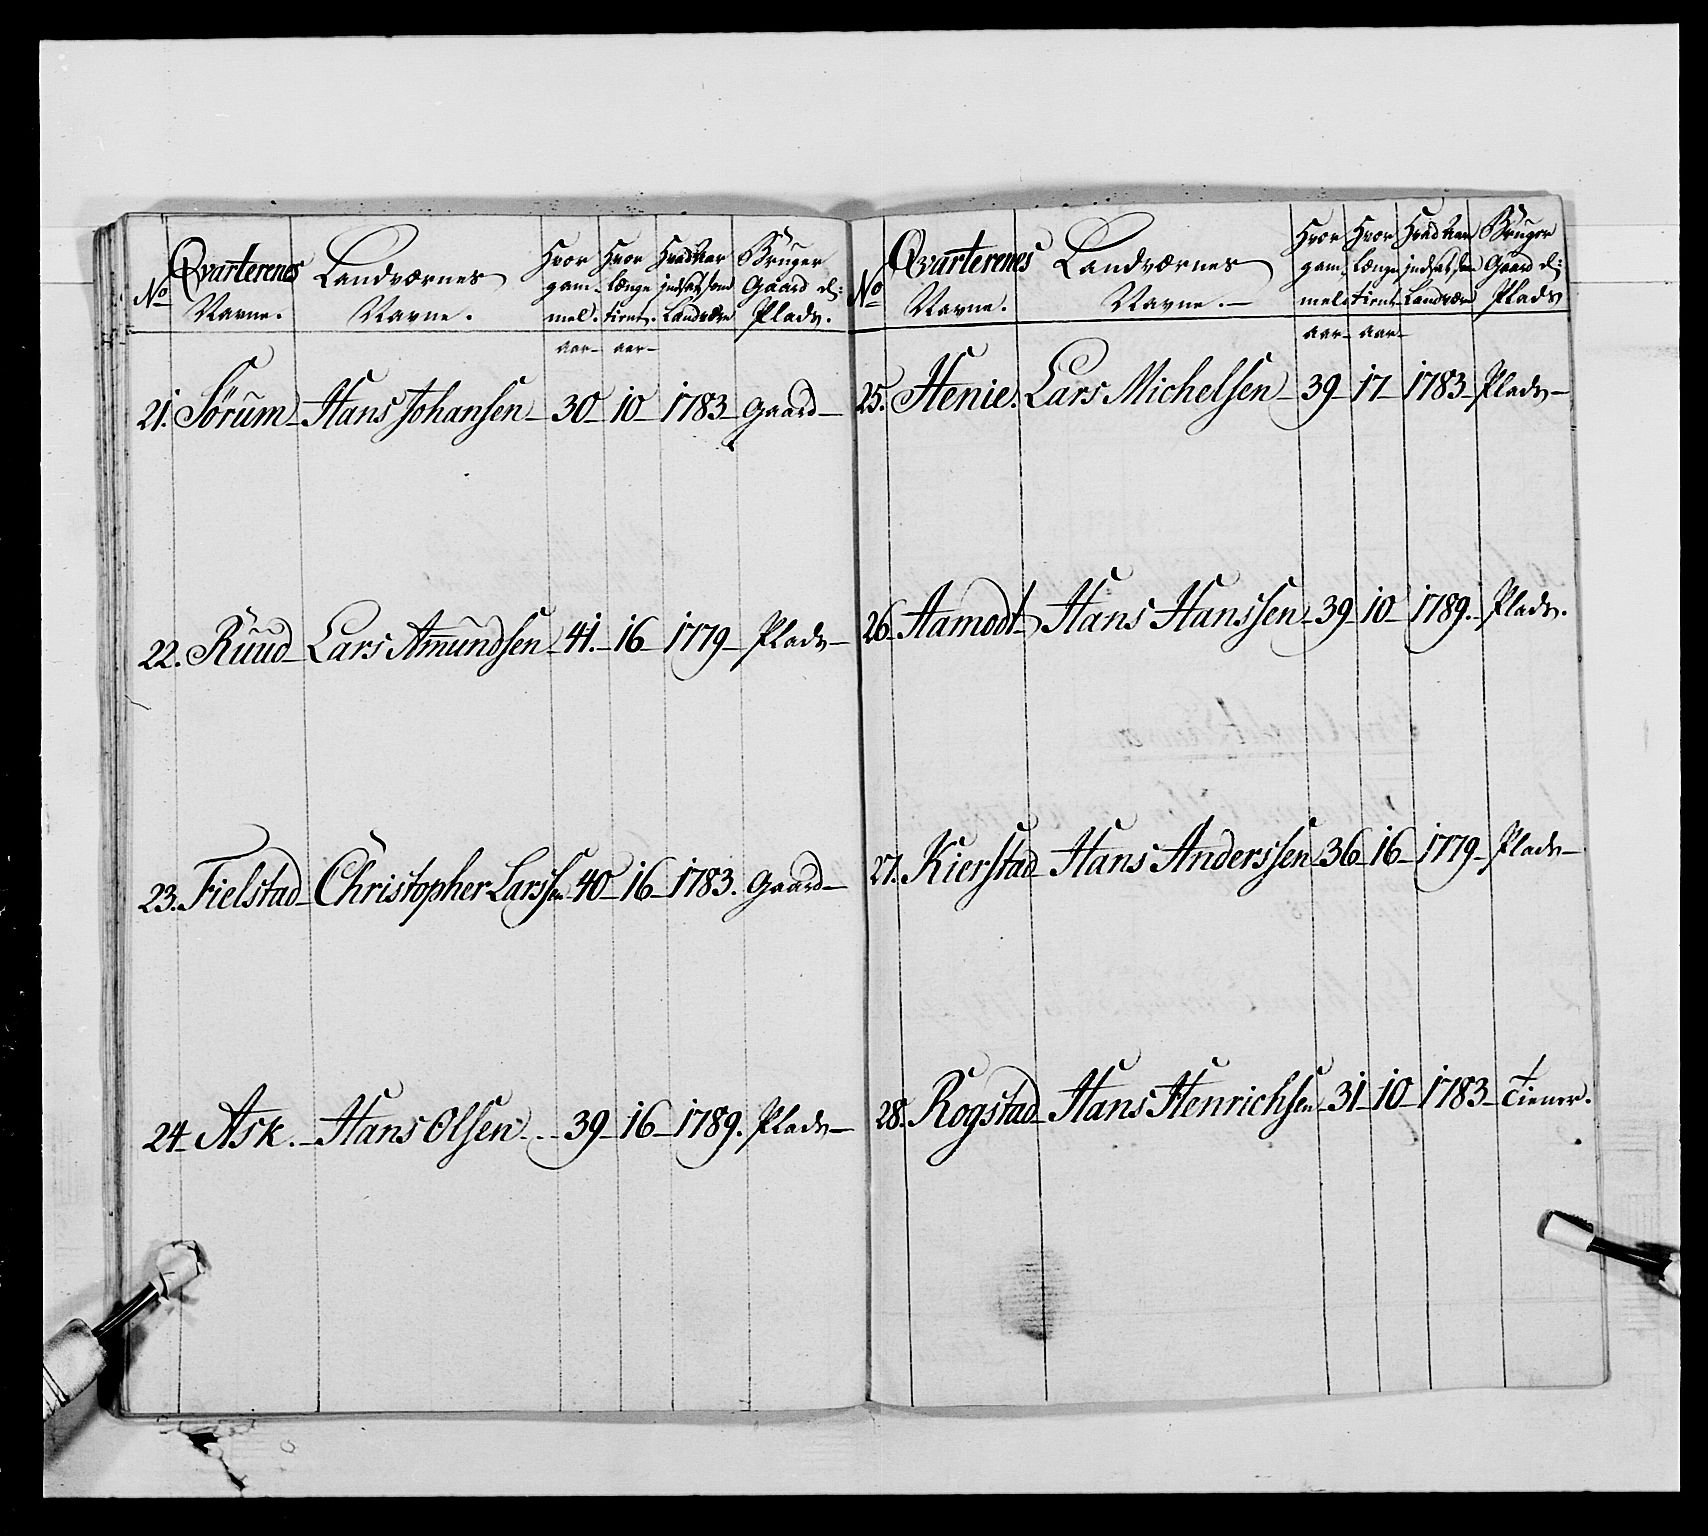 No Qvarterenes Navne. Landværnes Navne. Hvor gam- mel. Hvor længe tient. Hvad Aar indsat som Landværn Bruger Gaard el: Plads.
aar aar
21. Sørum Hans Johansen 30 10 1783 Gaard
22. Ruud Lars Amundsen 41. 16 1779 Plads
23. Fielstad Christopher Larssen 40 16 1783. Gaard
24 Ask. Hans Olsen 39 16 1789. Plads
No Qvarterenes Navne. Landværnes Navne. Hvor gam- mel Hvor længe tient Hvad Aar indsat som Landværn Bruger Gaard el: Plads
aar aar
25. Henie. Lars Michelsen 39 17 1783 Plads
26 Aamodt Hans Hanssen 39 10 1789. Plads.
27. Kierstad Hans Anderssen 36 16 1779 Plads
28. Rogstad Hans Henrichsen 31 10 1783 Tiener.